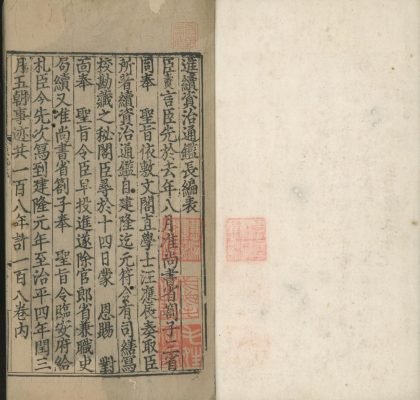 進續資治通鑑長編表
臣燾言臣先於去年八月准尚書省劄子二省
同奉　聖旨依敷文閣直學士汪應辰奏取臣
所著續資治通鑑自建隆迄元符令有司繕寫
校勘藏之秘閣臣尋於十四日蒙　恩賜　對
面奉　聖旨令臣早投進遂除官郎省兼職史
局續又准尚書省劄子奉　聖旨令臨安府給
札臣今先次寫到建隆元年至治平四年閏三
月五朝事迹共一百八年計一百八卷內